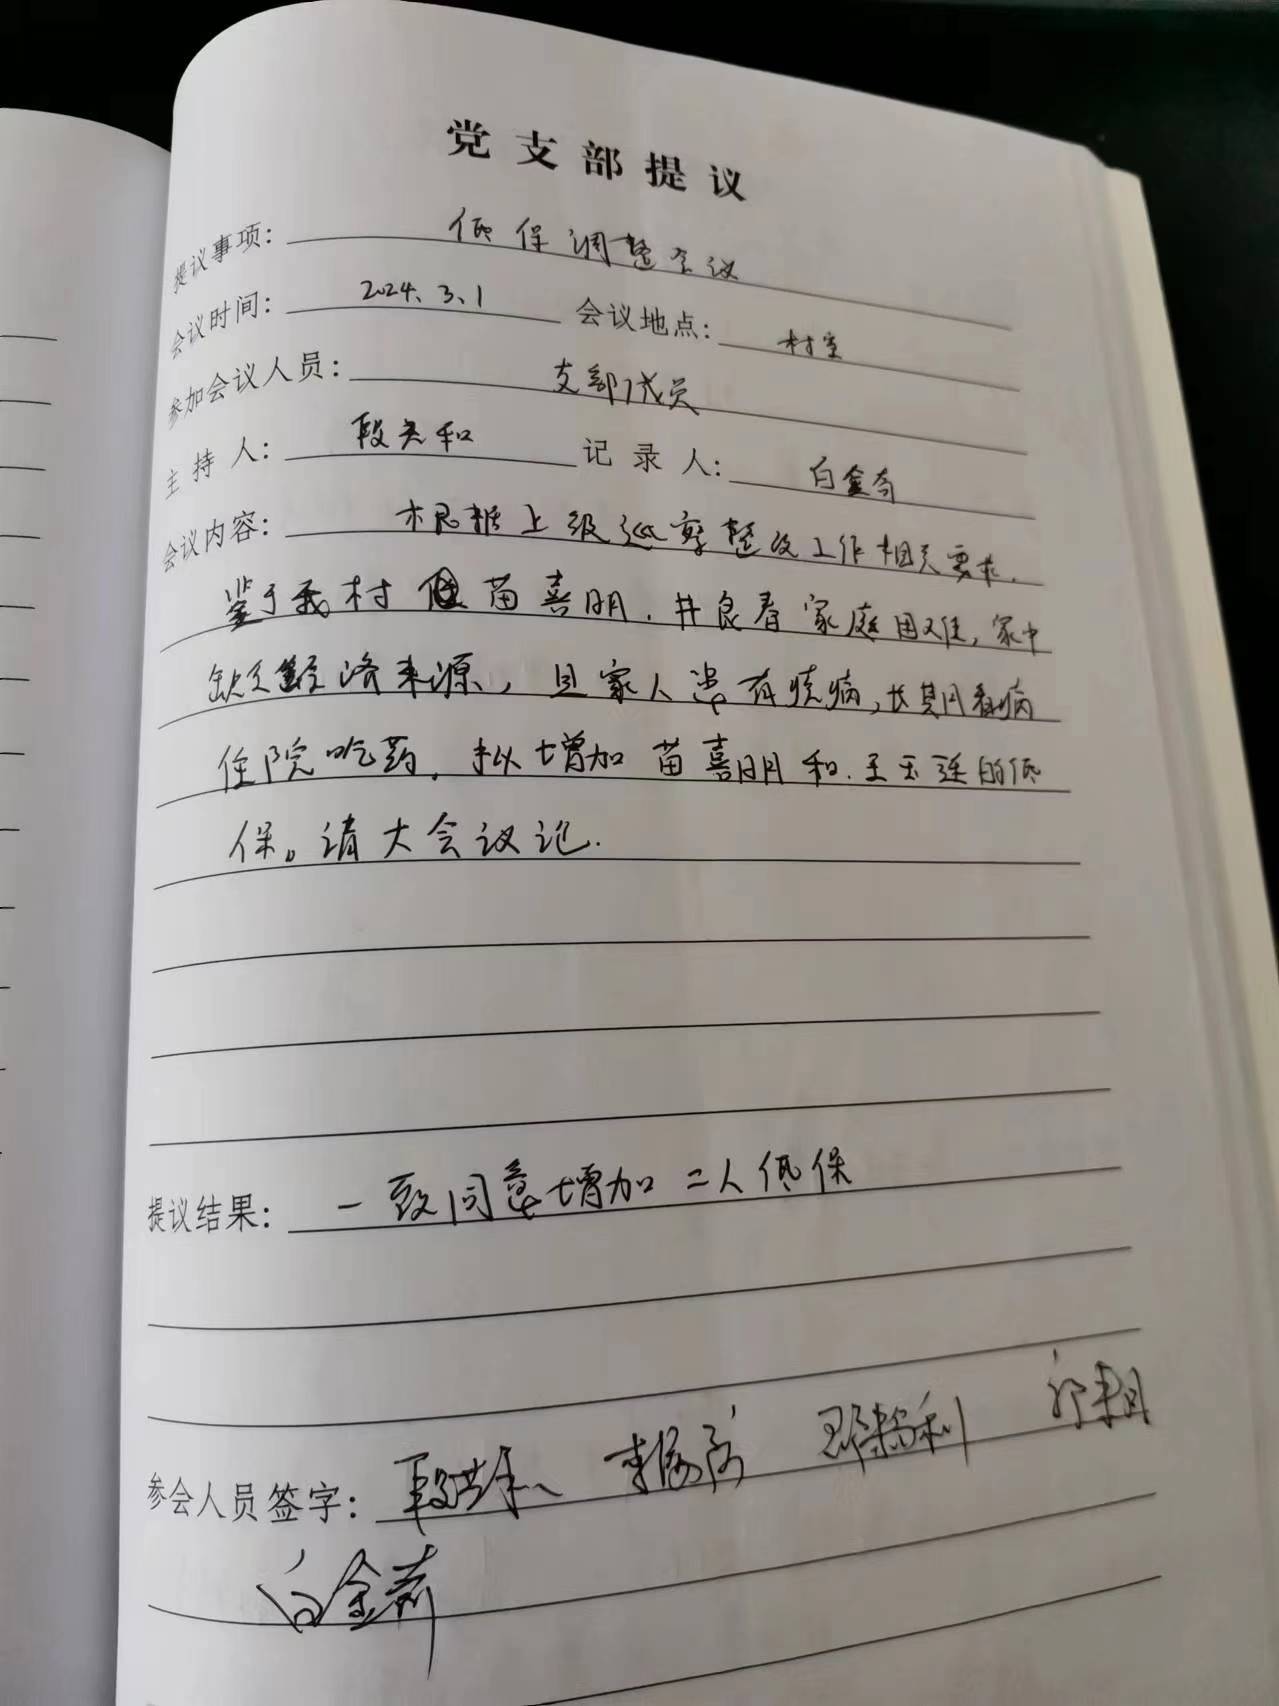 党支部提议
提议事项: 低保调整会议
会议时间: 2024.3.1 会议地点: 村室
参加会议人员: 支部成员
主持人: 段 和 记录人: 白金
会议内容: 根据上级巡察整改工作相关要求.
鉴于我村 苗喜明.井良春家庭困难,家中
缺乏经济来源,且家人患有 病,长期看病
住院吃药.拟增加苗喜明和.王玉莲的低
保。请大会议论.
提议结果: 一致同意增加二人低保
参会人员签字: 段
白金